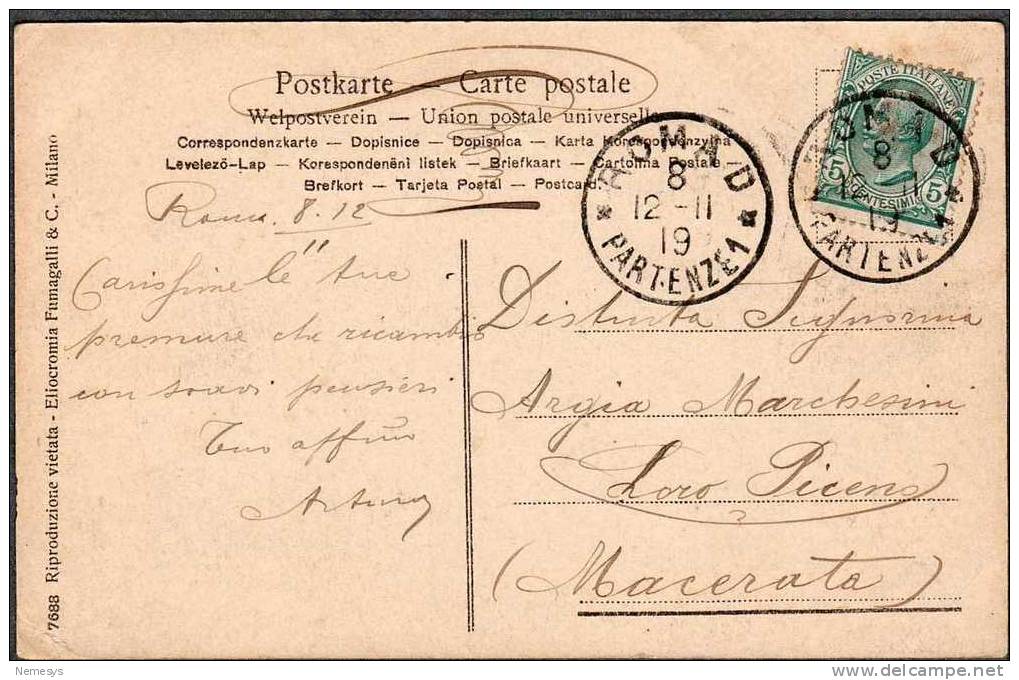 Postkarte — Carte postale
Welpostverein — Union postale universelle
Correspondenzkarte — Dopisnice — Dopisnica — Karta Korespondencyjna
Levelező-Lap — Korespondenční lístek — Briefkaart — Cartolina Postale —
Brefkort — Tarjeta Postal — Postcard.
Roma 8.12
Carissime le tue
premure che ricambio
con soavi pensieri
Tuo affmo
Arturo
7688 Riproduzione vietata - Eliocromia Fumagalli & C. - Milano
ROMA D
8
12-11
19
PARTENZE 1
POSTE ITALIANE
5 5
CENTESIMI
ROMA D
8
12-11
19
PARTENZE 1
Distinta Signorina
Argia Marchesini
Loro Piceno
(Macerata)
Nemesys
www.delcampe.net